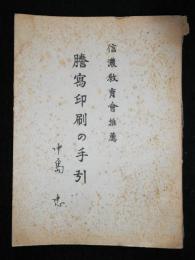 信濃教育會推薦
謄寫印刷の手引
中島 忠